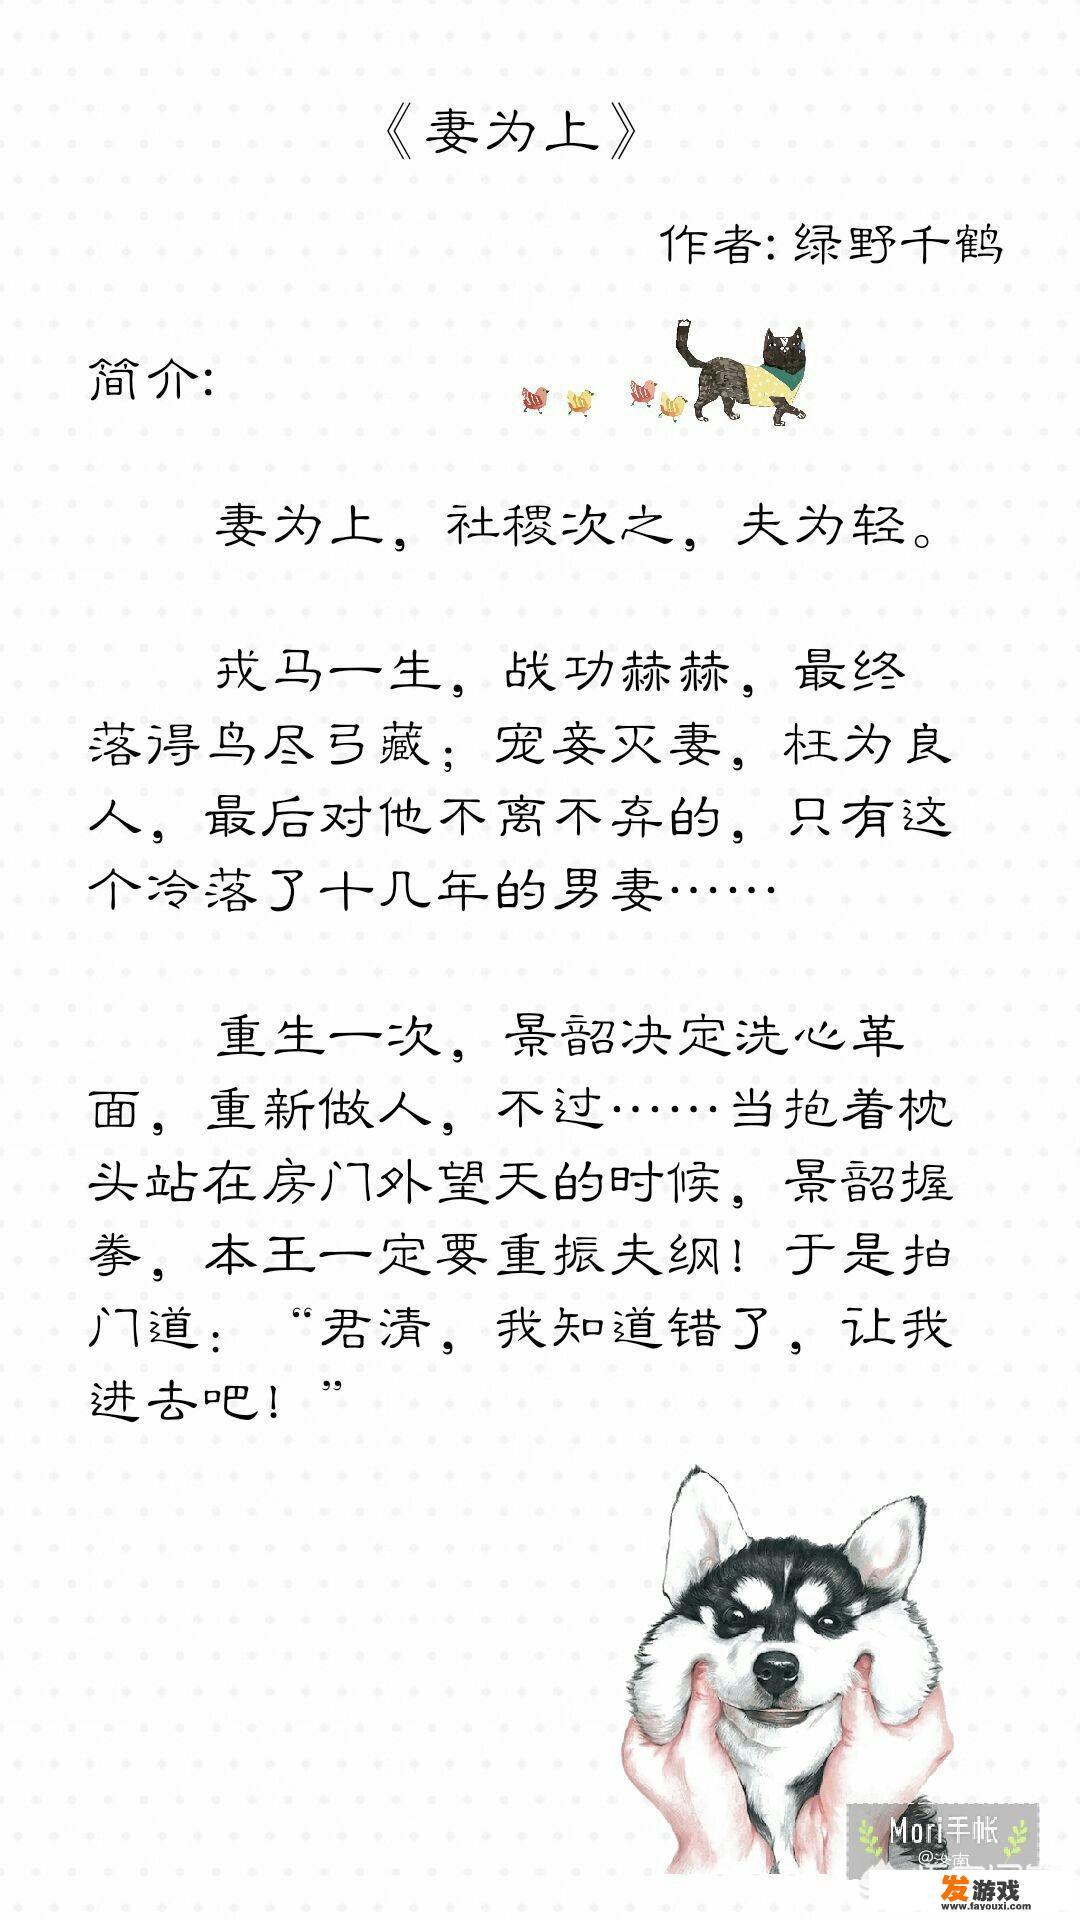 《妻为上》
作者: 绿野千鹤
简介:
妻为上，社稷次之，夫为轻。
戎马一生，战功赫赫，最终
落得鸟尽弓藏；宠妾灭妻，枉为良
人，最后对他不离不弃的，只有这
个冷落了十几年的男妻……
重生一次，景韶决定洗心革
面，重新做人，不过……当抱着枕
头站在房门外望天的时候，景韶握
拳，本王一定要重振夫纲！于是拍
门道：“君清，我知道错了，让我
进去吧！”
Mori手帐
发游戏
www.fayouxi.com